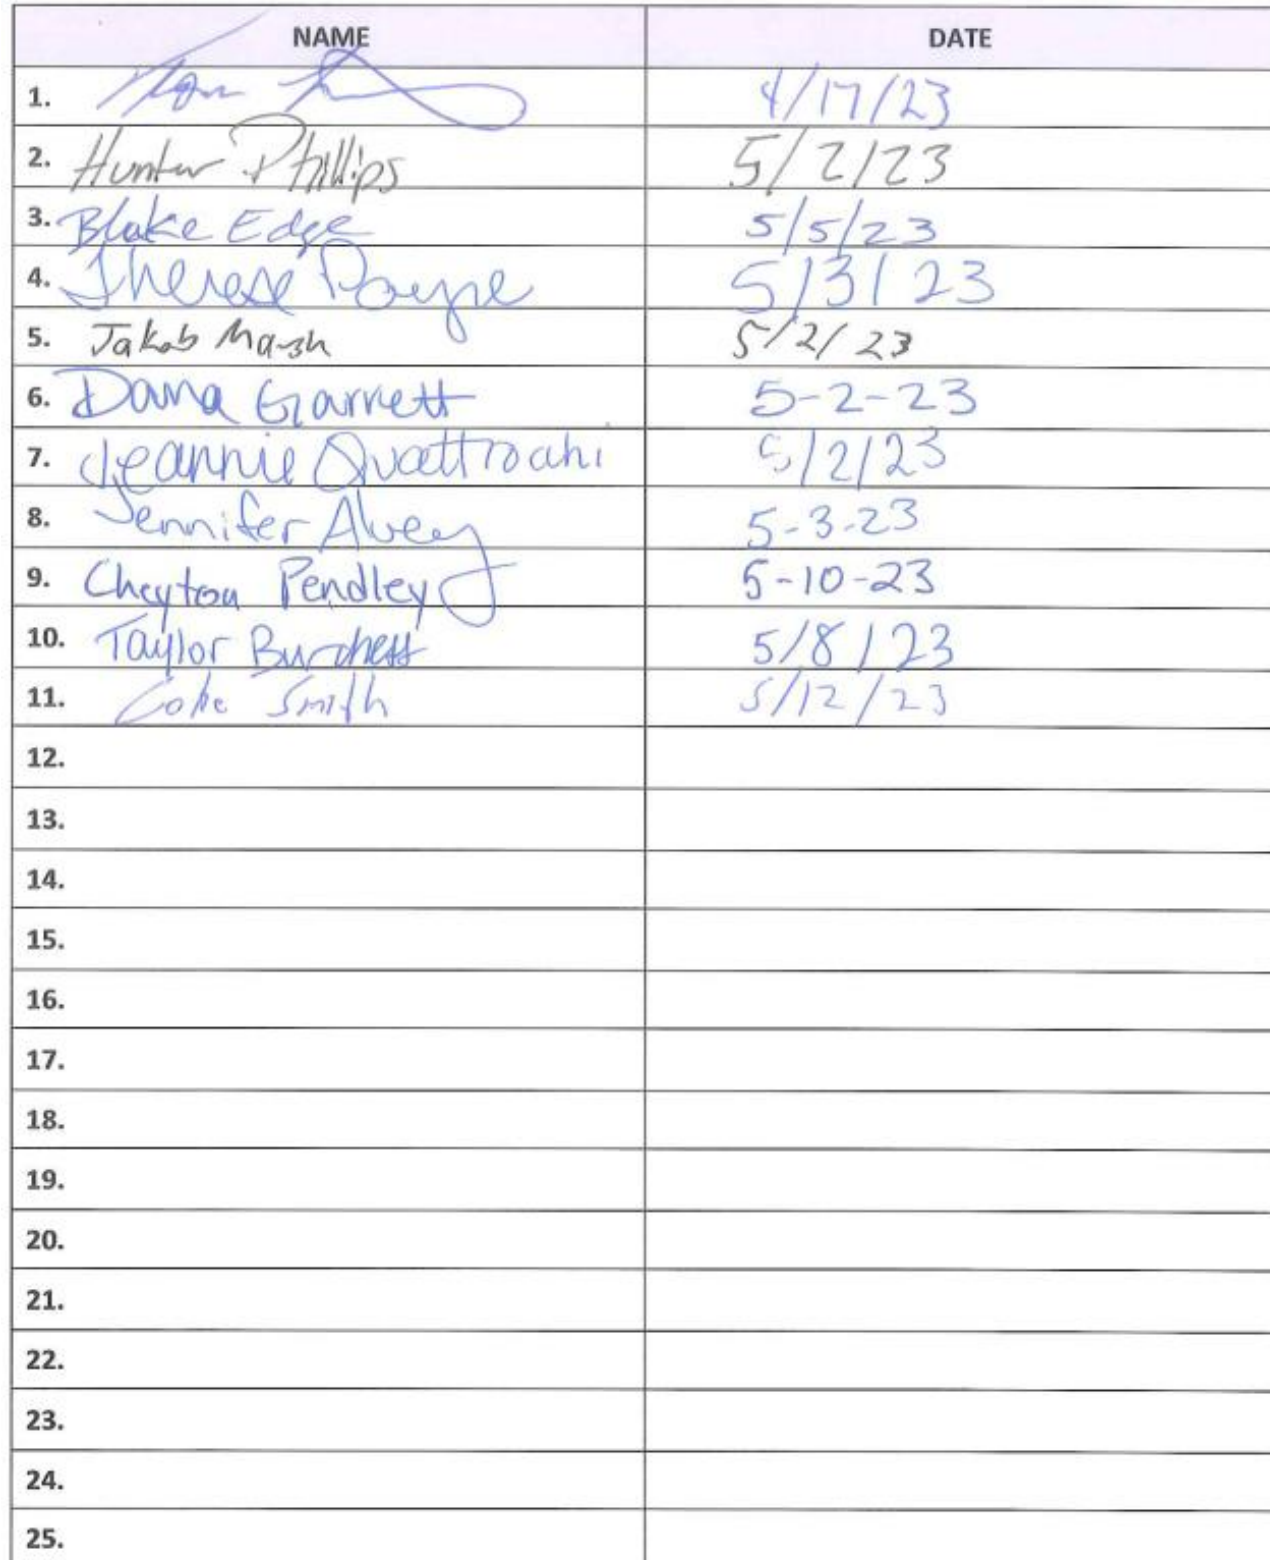 NAME DATE
1. 4/17/23
2. Hunter Phillips 5/2/23
3. Blake Edge 5/5/23
4. Therese Payne 5/3/23
5. Jakob Marsh 5/2/23
6. Dana Garrett 5-2-23
7. Jeannie Quattrochi 5/2/23
8. Jennifer Alvey 5-3-23
9. Cheyton Pendley 5-10-23
10. Taylor Burchett 5/8/23
11. Smith 5/12/23
12.
13.
14.
15.
16.
17.
18.
19.
20.
21.
22.
23.
24.
25.